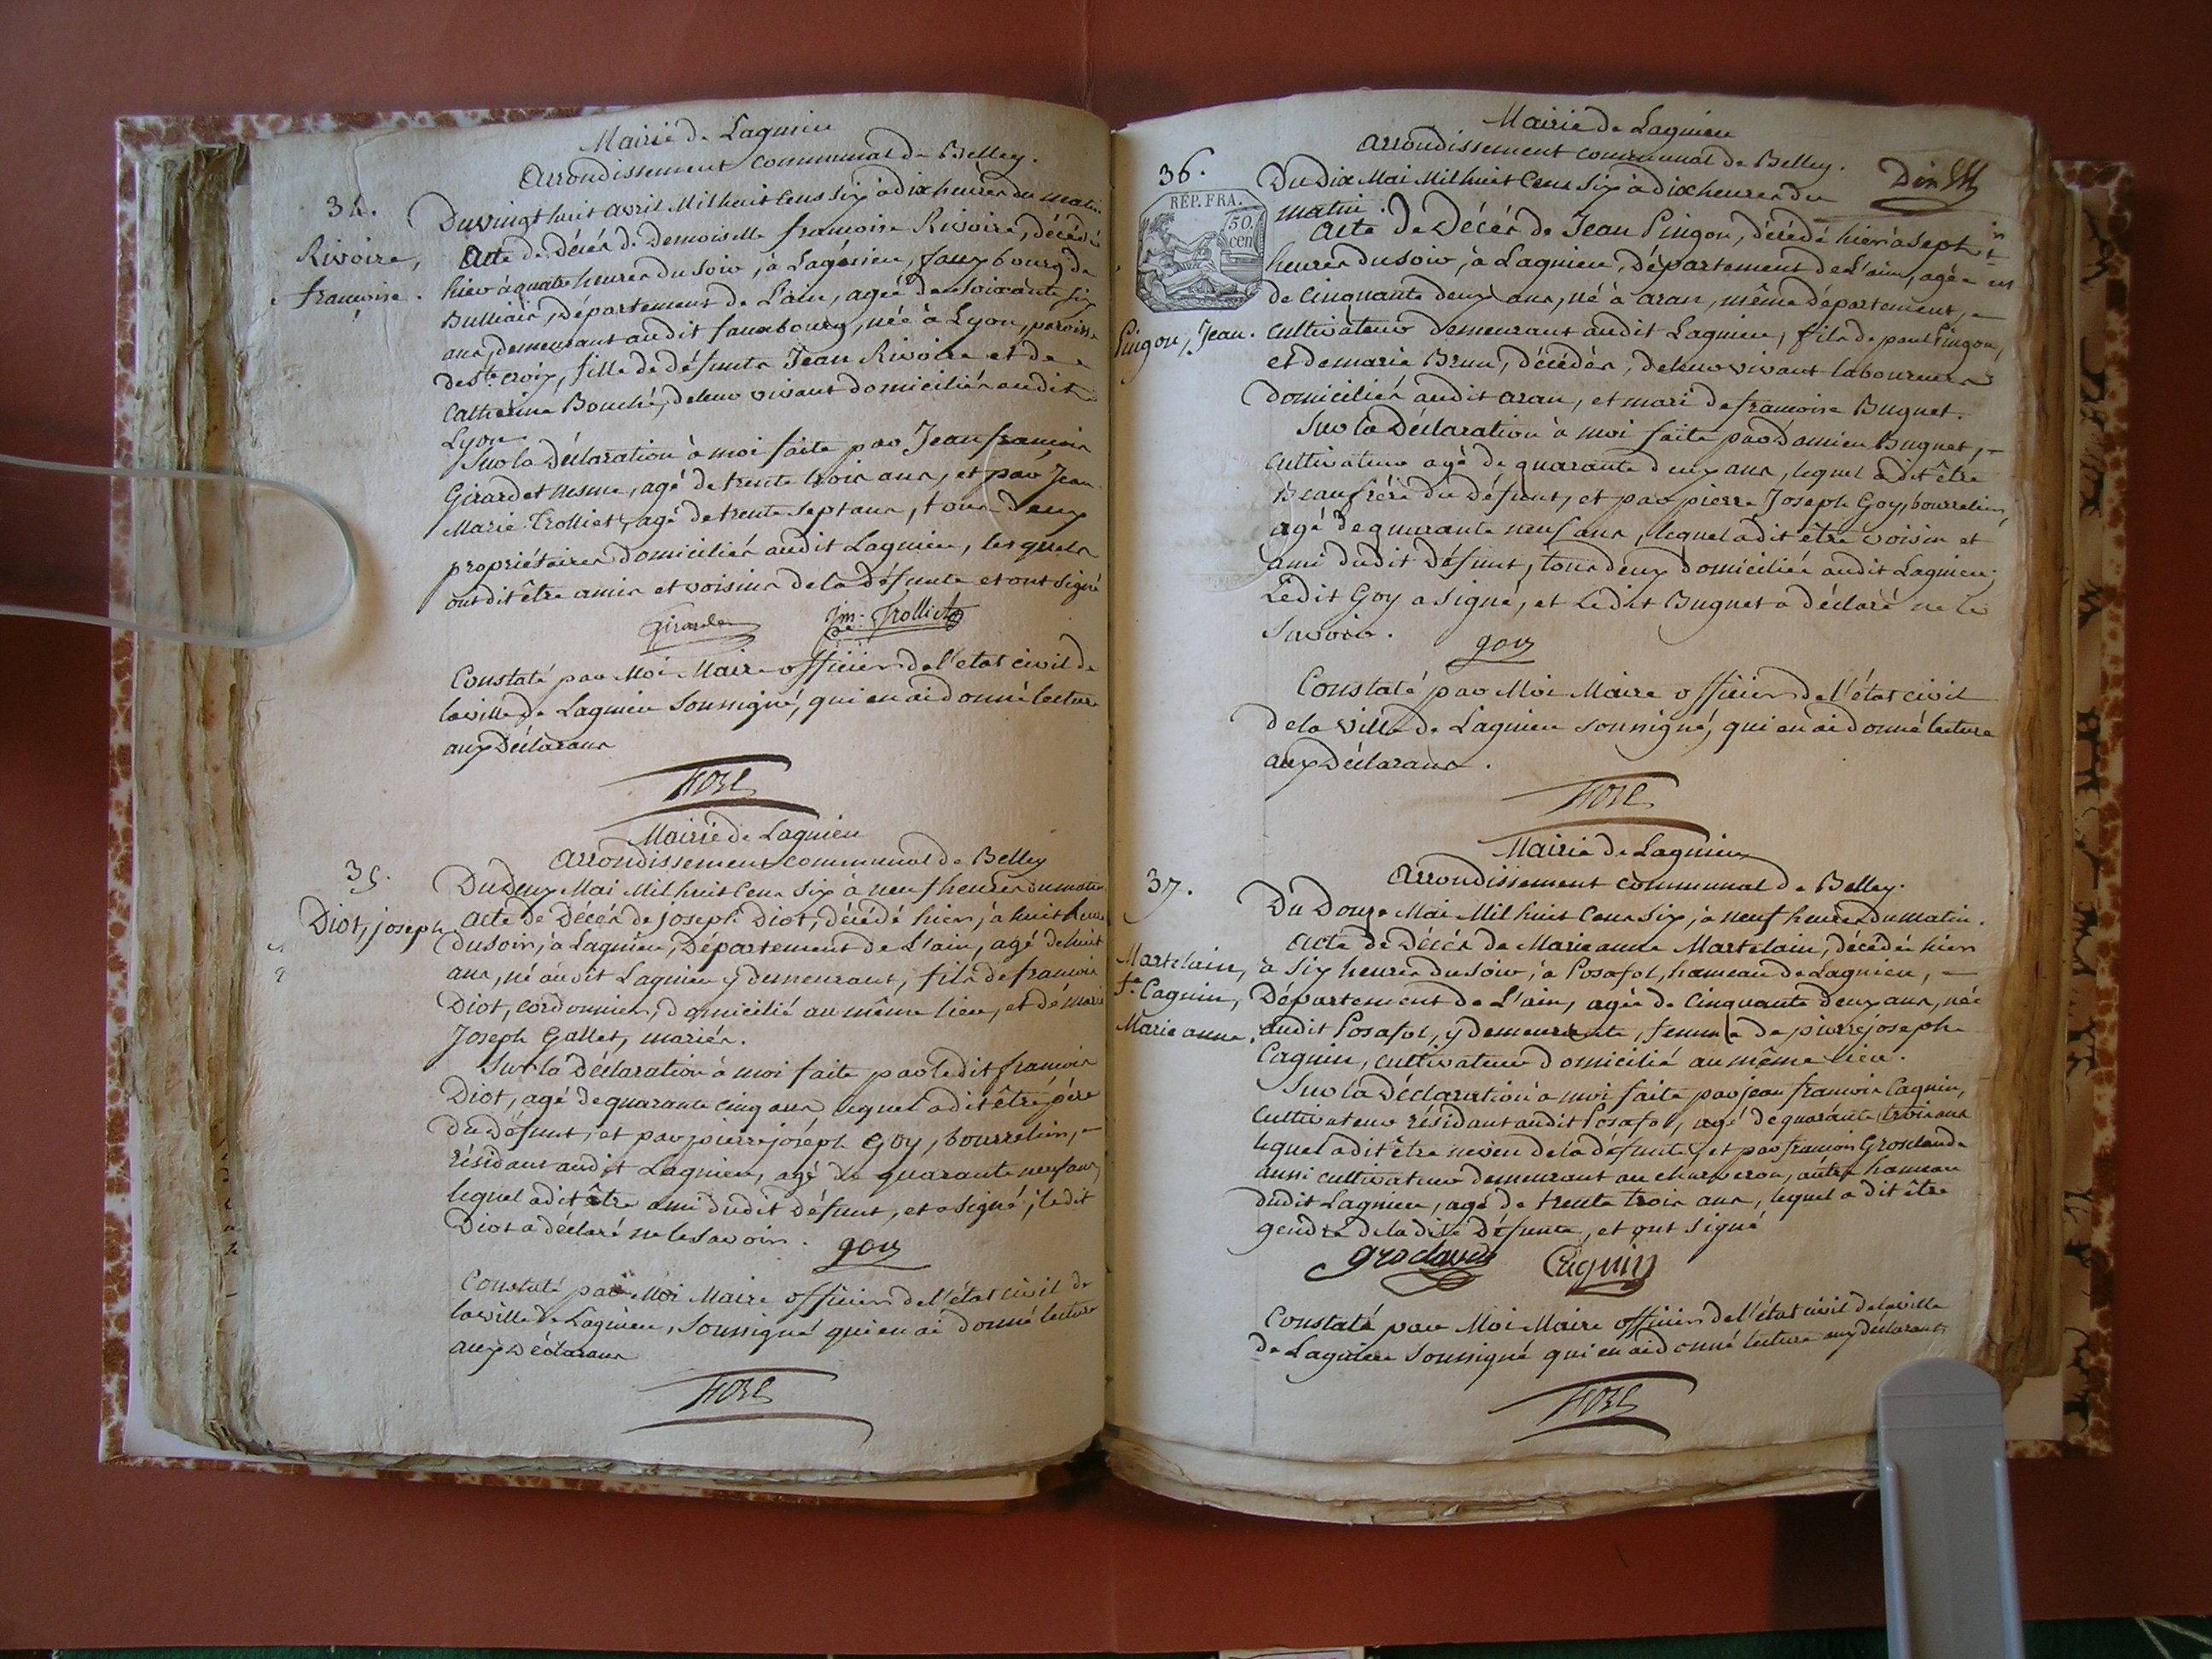 Mairie de Lagnieu
Arrondissement communal de Belley.
34.
Rivoire,
françoise.
Du vingt huit avril Mil huit Cens six à dix heures du matin
Acte de décès de Demoiselle françoise Rivoire, décédée
hier à quatre heures du soir, à Lagnieu, fauxbourg de
Bulliais, Département de L'ain, agée de soixante six
ans, demeurant audit fauxbourg, née à Lyon, paroisse
de Ste croix, fille de défunts Jean Rivoire et de
Catherine Bouché, de leur vivant domiciliés audit
Lyon.
Sur la déclaration à moi faite par Jean françois
Girardet nesme, agé de trente trois ans, et par Jean
Marie Trolliet, agé de trente sept ans, tous deux
propriétaires domiciliés audit Lagnieu, lesquels
ont dit être amis et voisins de la défunte et ont signé
Girardet Jm. Trolliet
Constaté par Moi Maire officier de l'état civil de
la ville de Lagnieu soussigné, qui en ai donné lecture
aux Déclarans
Mairie de Lagnieu
Arrondissement communal de Belley
35.
Diot, joseph
Du deux Mai Mil huit Cens six à neuf heures du matin
acte de Décès de Joseph Diot, décédé hier, à huit heures
du soir, à Lagnieu, Département de L'ain, agé de huit
ans, né audit Lagnieu y demeurant, fils de françois
Diot, cordonnier, domicilié au même lieu, et de marie
Joseph Gallet, mariés.
Sur la Déclaration à moi faite par ledit françois
Diot, agé de quarante cinq ans, lequel a dit être père
du défunt, et par pierre joseph Goy, bourrelier,
résidant audit Lagnieu, agé de quarante neuf ans,
lequel a dit être ami dudit défunt, et a signé, ledit
Diot a déclaré ne le savoir.
goy
Constaté par Moi Maire officier de l'état civil de
la ville de Lagnieu, soussigné qui en ai donné lecture
aux Déclarans
Mairie de Lagnieu
arrondissement communal de Belley.
36.
RÉP. FRA.
50 cen
Pingon, Jean.
Du Dix Mai Mil huit Cens six à dix heures du
matin.
Acte de Décès de Jean Pingon, décédé hier à sept
heures du soir, à Lagnieu, Département de L'ain, agé
de Cinquante deux ans, né à aran, même département,
cultivateur demeurant audit Lagnieu, fils de paul Pingon,
et de marie Brun, décédés, de leur vivant laboureurs
Domiciliés audit aran, et mari de françoise Bugnet.
Sur la Déclaration à moi faite par Damien Bugnet,
Cultivateur agé de quarante deux ans, lequel a dit être
Beaufrère du défunt, et par pierre Joseph Goy, bourrelier,
agé de quarante neuf ans, lequel a dit être voisin et
ami dudit défunt, tous deux domiciliés audit Lagnieu;
Ledit Goy a signé, et ledit Bugnet a déclaré ne le
savoir.
goy
Constaté par Moi Maire officier de l'état civil
de la ville de Lagnieu soussigné, qui en ai donné lecture
aux Déclarans.
Mairie de Lagnieu
Arrondissement communal de Belley.
37.
Martelain,
fe Cagnin,
Marie anne.
Du Douze Mai Mil huit Cens six, à neuf heures du matin.
Acte de Décès de Marie anne Martelain, décédée hier
à six heures du soir, à Posafol, hameau de Lagnieu,
Département de L'ain, agée de Cinquante deux ans, née
audit Posafol, y demeurante, femme de pierre joseph
Cagnin, cultivateur domicilié au même lieu.
Sur la Déclaration à moi faite par jean françois Cagnin,
Cultivateur résidant audit Posafol, agé de quarante trois ans
lequel a dit être neveu de la défunte, et par françois Groslaude
aussi cultivateur demeurant au charveron, autre hameau
dudit Lagnieu, agé de trente trois ans, lequel a dit être
gendre de la dite Défunte, et ont signé
Cagnin
Constaté par Moi Maire officier de l'état civil de la ville
de Lagnieu soussigné qui en ai donné lecture aux déclarants